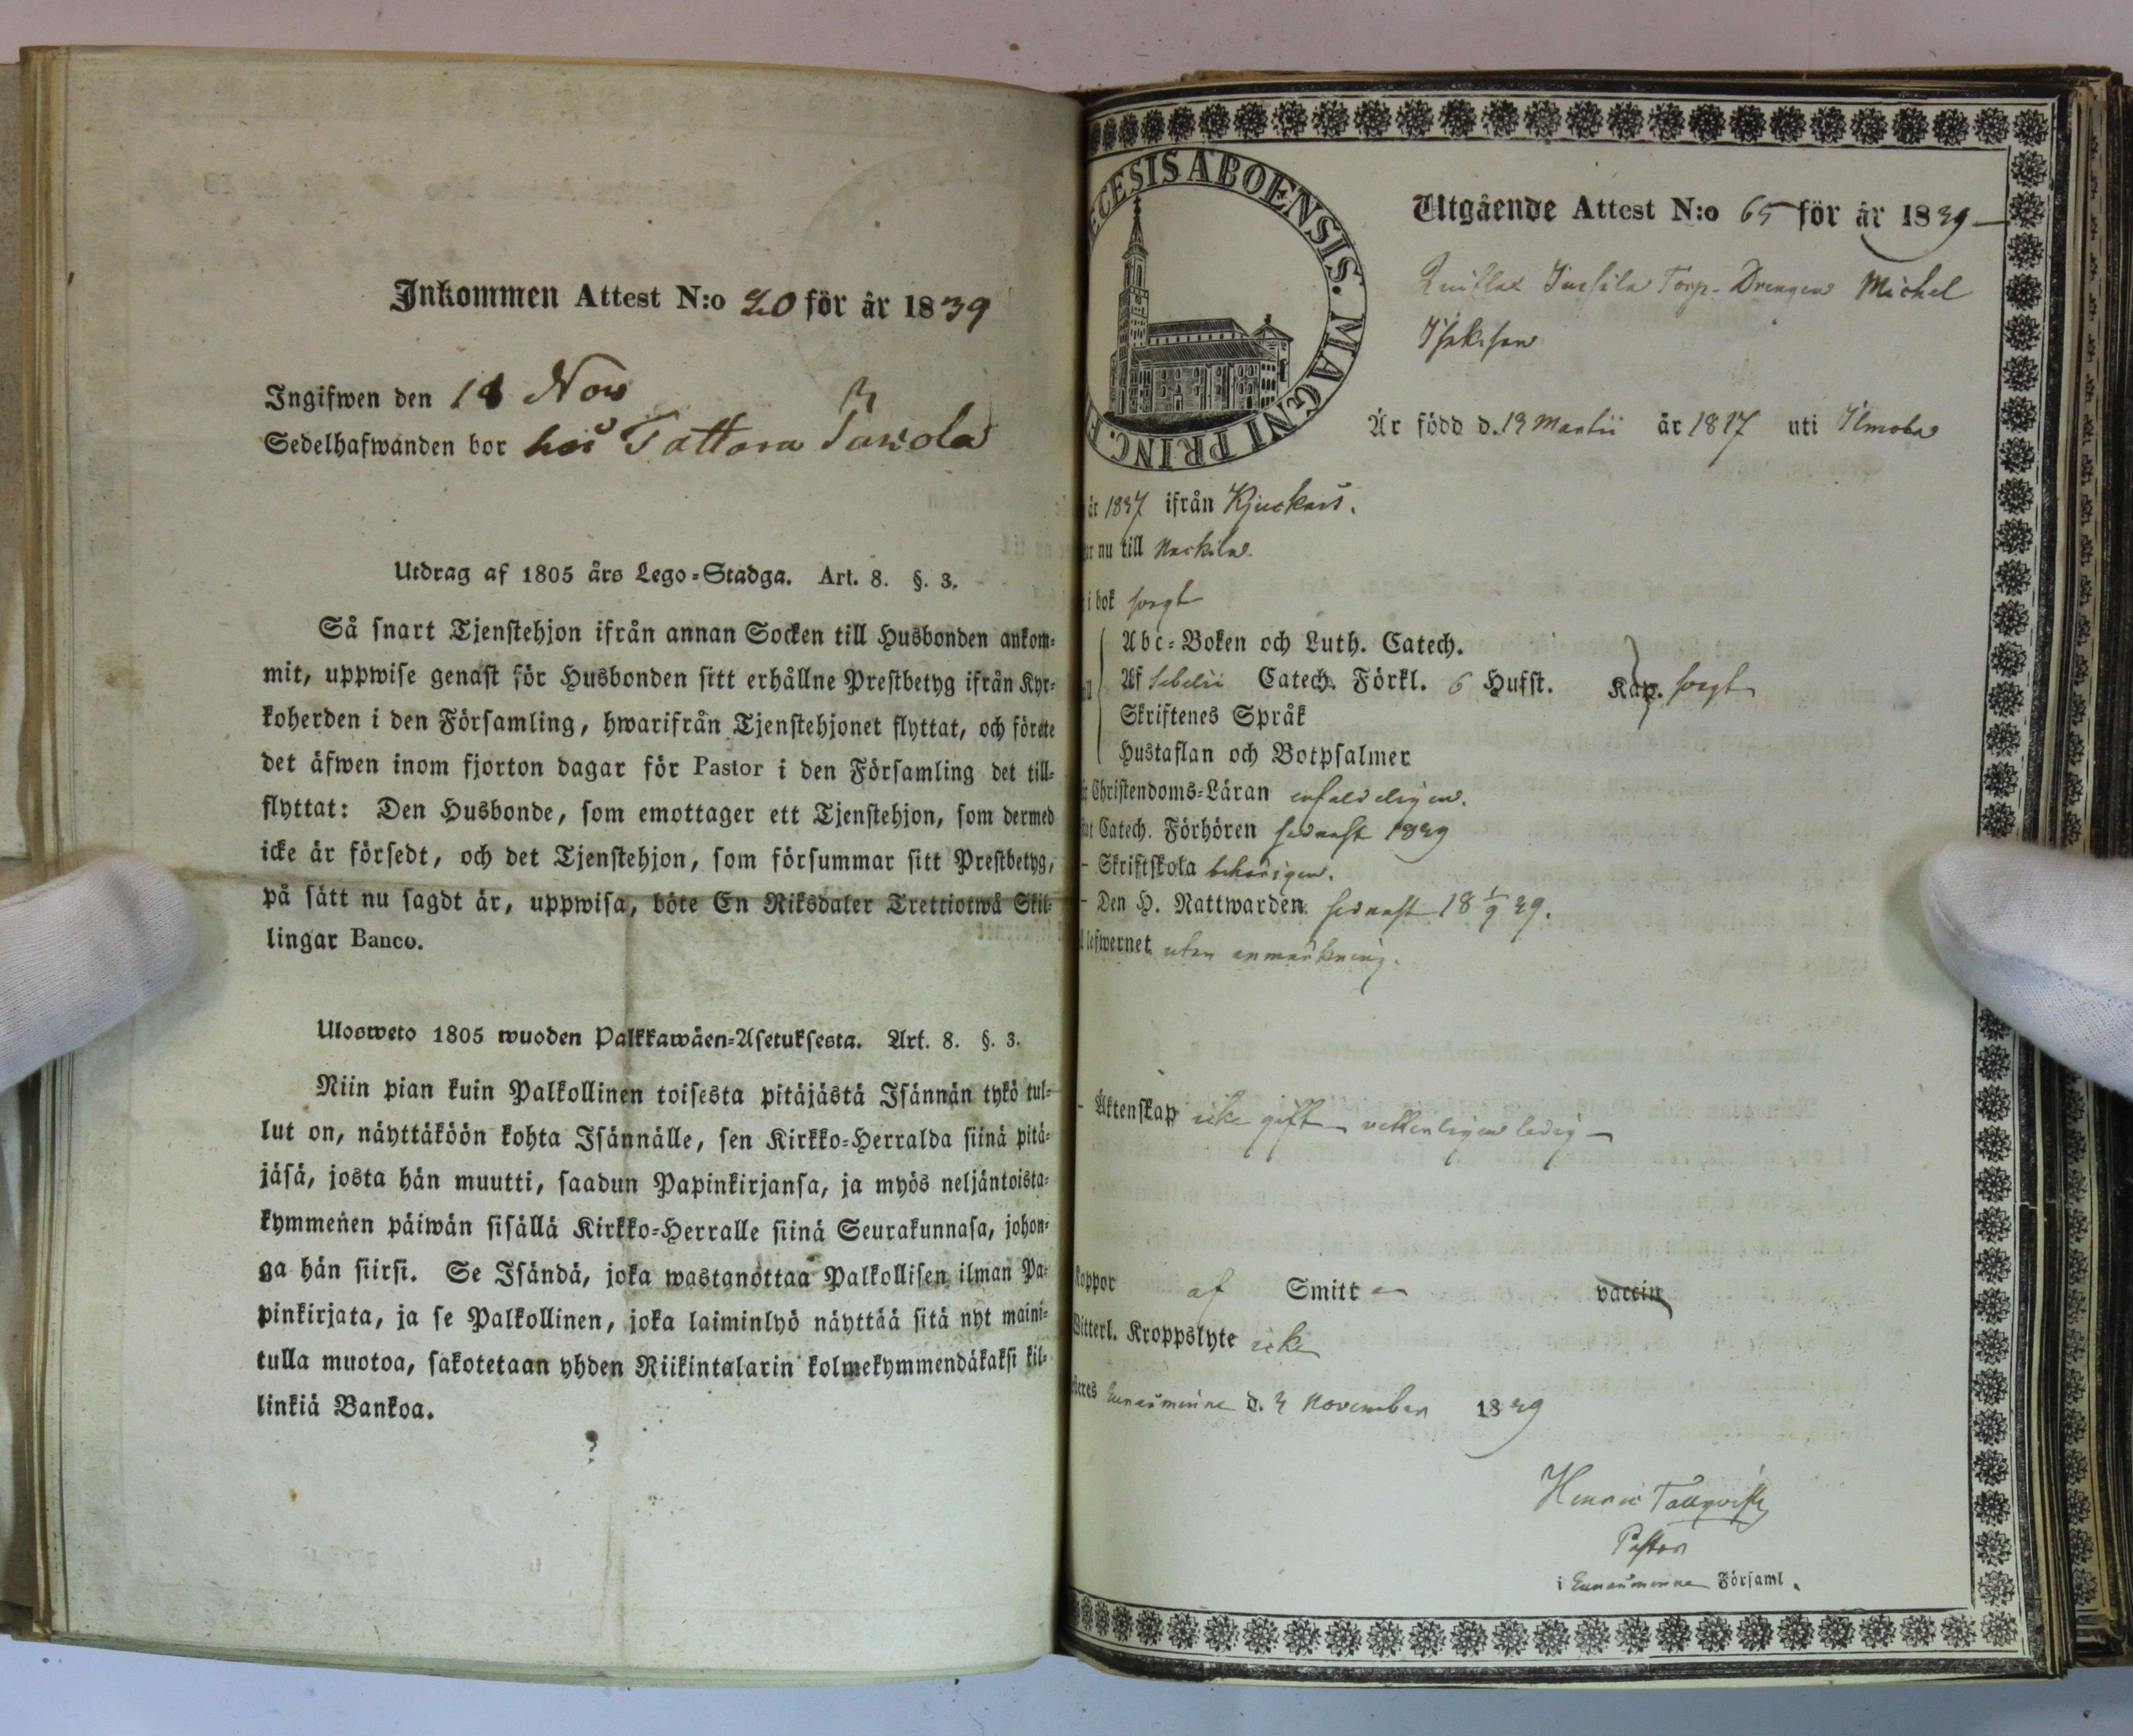 Inkommen Attest N:o 20 för år 1839
Ingifwen den 18 Nov
Sedelhafwanden bor hos Tattara
Utdrag af 1805 års Lego-Stadga. Art. 8. §. 3.
Så snart Tjenstehjon ifrån annan Socken till Husbonden ankom-
mit, uppwise genast för Husbonden sitt erhållne Prestbetyg ifrån Kyr-
koherden i den Församling, hwarifrån Tjenstehjonet flyttat, och förete
det äfwen inom fjorton dagar för Pastor i den Församling det till-
flyttat: Den Husbonde, som emottager ett Tjenstehjon, som dermed
icke är försedt, och det Tjenstehjon, som försummar sitt Prestbetyg,
på sätt nu sagdt är, uppwisa, böte En Riksdaler Trettiotwå Skil-
lingar Banco.
Ulosweto 1805 wuoden Palkkawäen-Asetuksesta. Art. 8. §. 3.
Niin pian kuin Palkollinen toisesta pitäjästä Isännän tykö tul-
lut on, näyttäköön kohta Isännälle, sen Kirkko-Herralda siinä pitä-
jäsä, josta hän muutti, saadun Papinkirjansa, ja myös neljäntoista-
kymmenen päiwän sisällä Kirkko-Herralle siinä Seurakunnasa, johon-
ga hän siirsi. Se Isändä, joka wastanottaa Palkollisen ilman Pa-
pinkirjata, ja se Palkollinen, joka laiminlyö näyttää sitä nyt maini-
tulla muotoa, sakotetaan yhden Riikintalarin kolmekymmendäkaksi kil-
linkiä Bankoa.
ECESIS ABOENSIS. MAGNI PRINC. F
Utgående Attest N:o 65 för år 1839
Torp-Drengen Michel
Isaksson
Är född d. 19 Martii år 1817 uti
år 1837 ifrån Kjuckais.
ur nu till Nackila.
i bok svagt
Abc-Boken och Luth. Catech.
Af Sebelii Catech. Förkl. 6 Hufst. Kap. svagt
Skriftenes Språk
Hustaflan och Botpsalmer
Christendoms-Läran enfaldeligen.
Catech. Förhören senast 1839
- Skriftskola behörigen.
- Den H. Nattwarden senast 18 1/9 39.
lefwernet utan anmärkning.
- Äktenskap icke gift vetterligen ledig
Koppor af Smitta vaccin
Witterl. Kroppslyte icke
teres Euraåminne d. 3 November 1839
Henric Tallqvist
Pastor
i Euraåminne Församl.